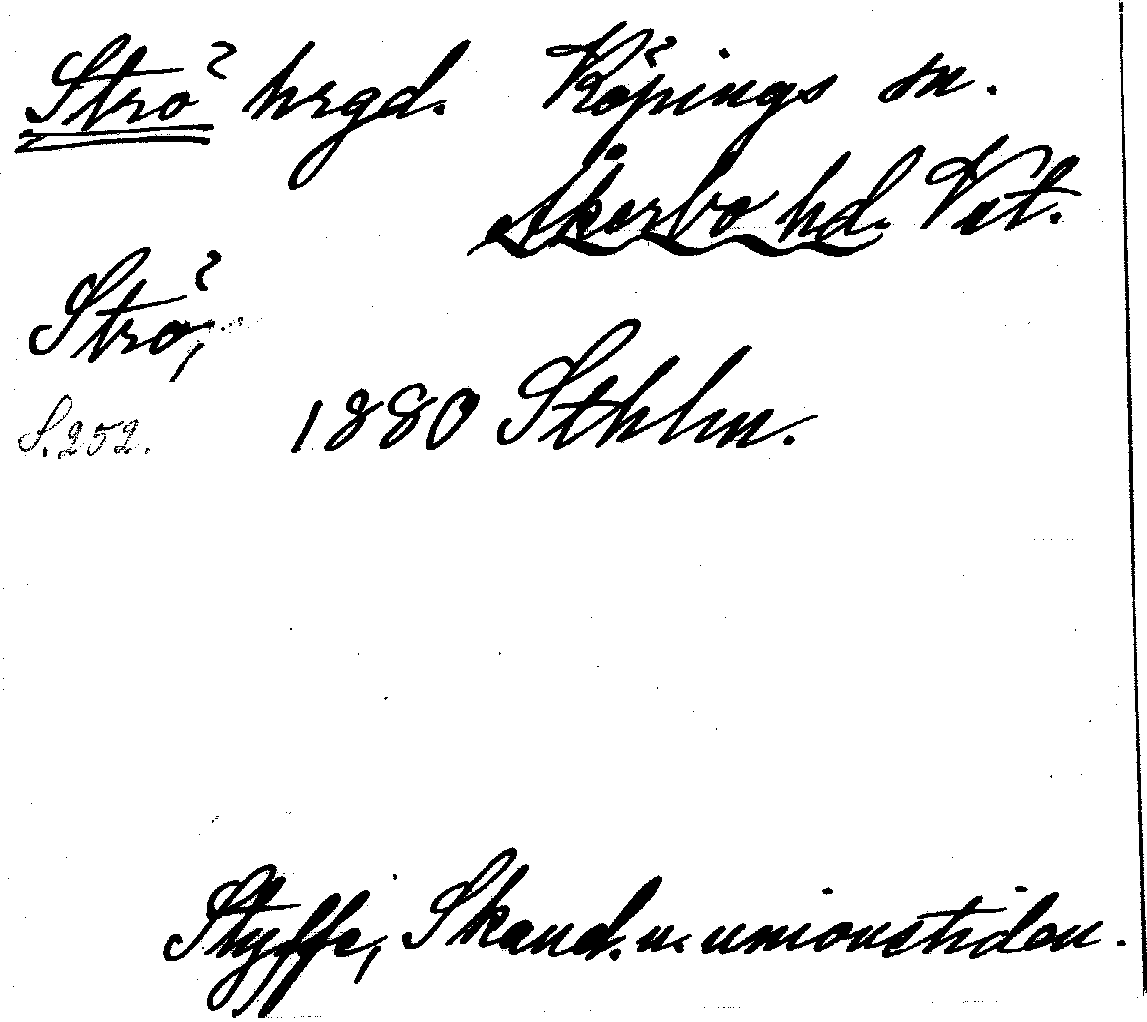 Strö hrgd. Köpings sn.
Åkerbo hd. Vstm.
Strö,
S. 252. 1880 Sthlm.
Styffe, Skand. u. unionstiden.